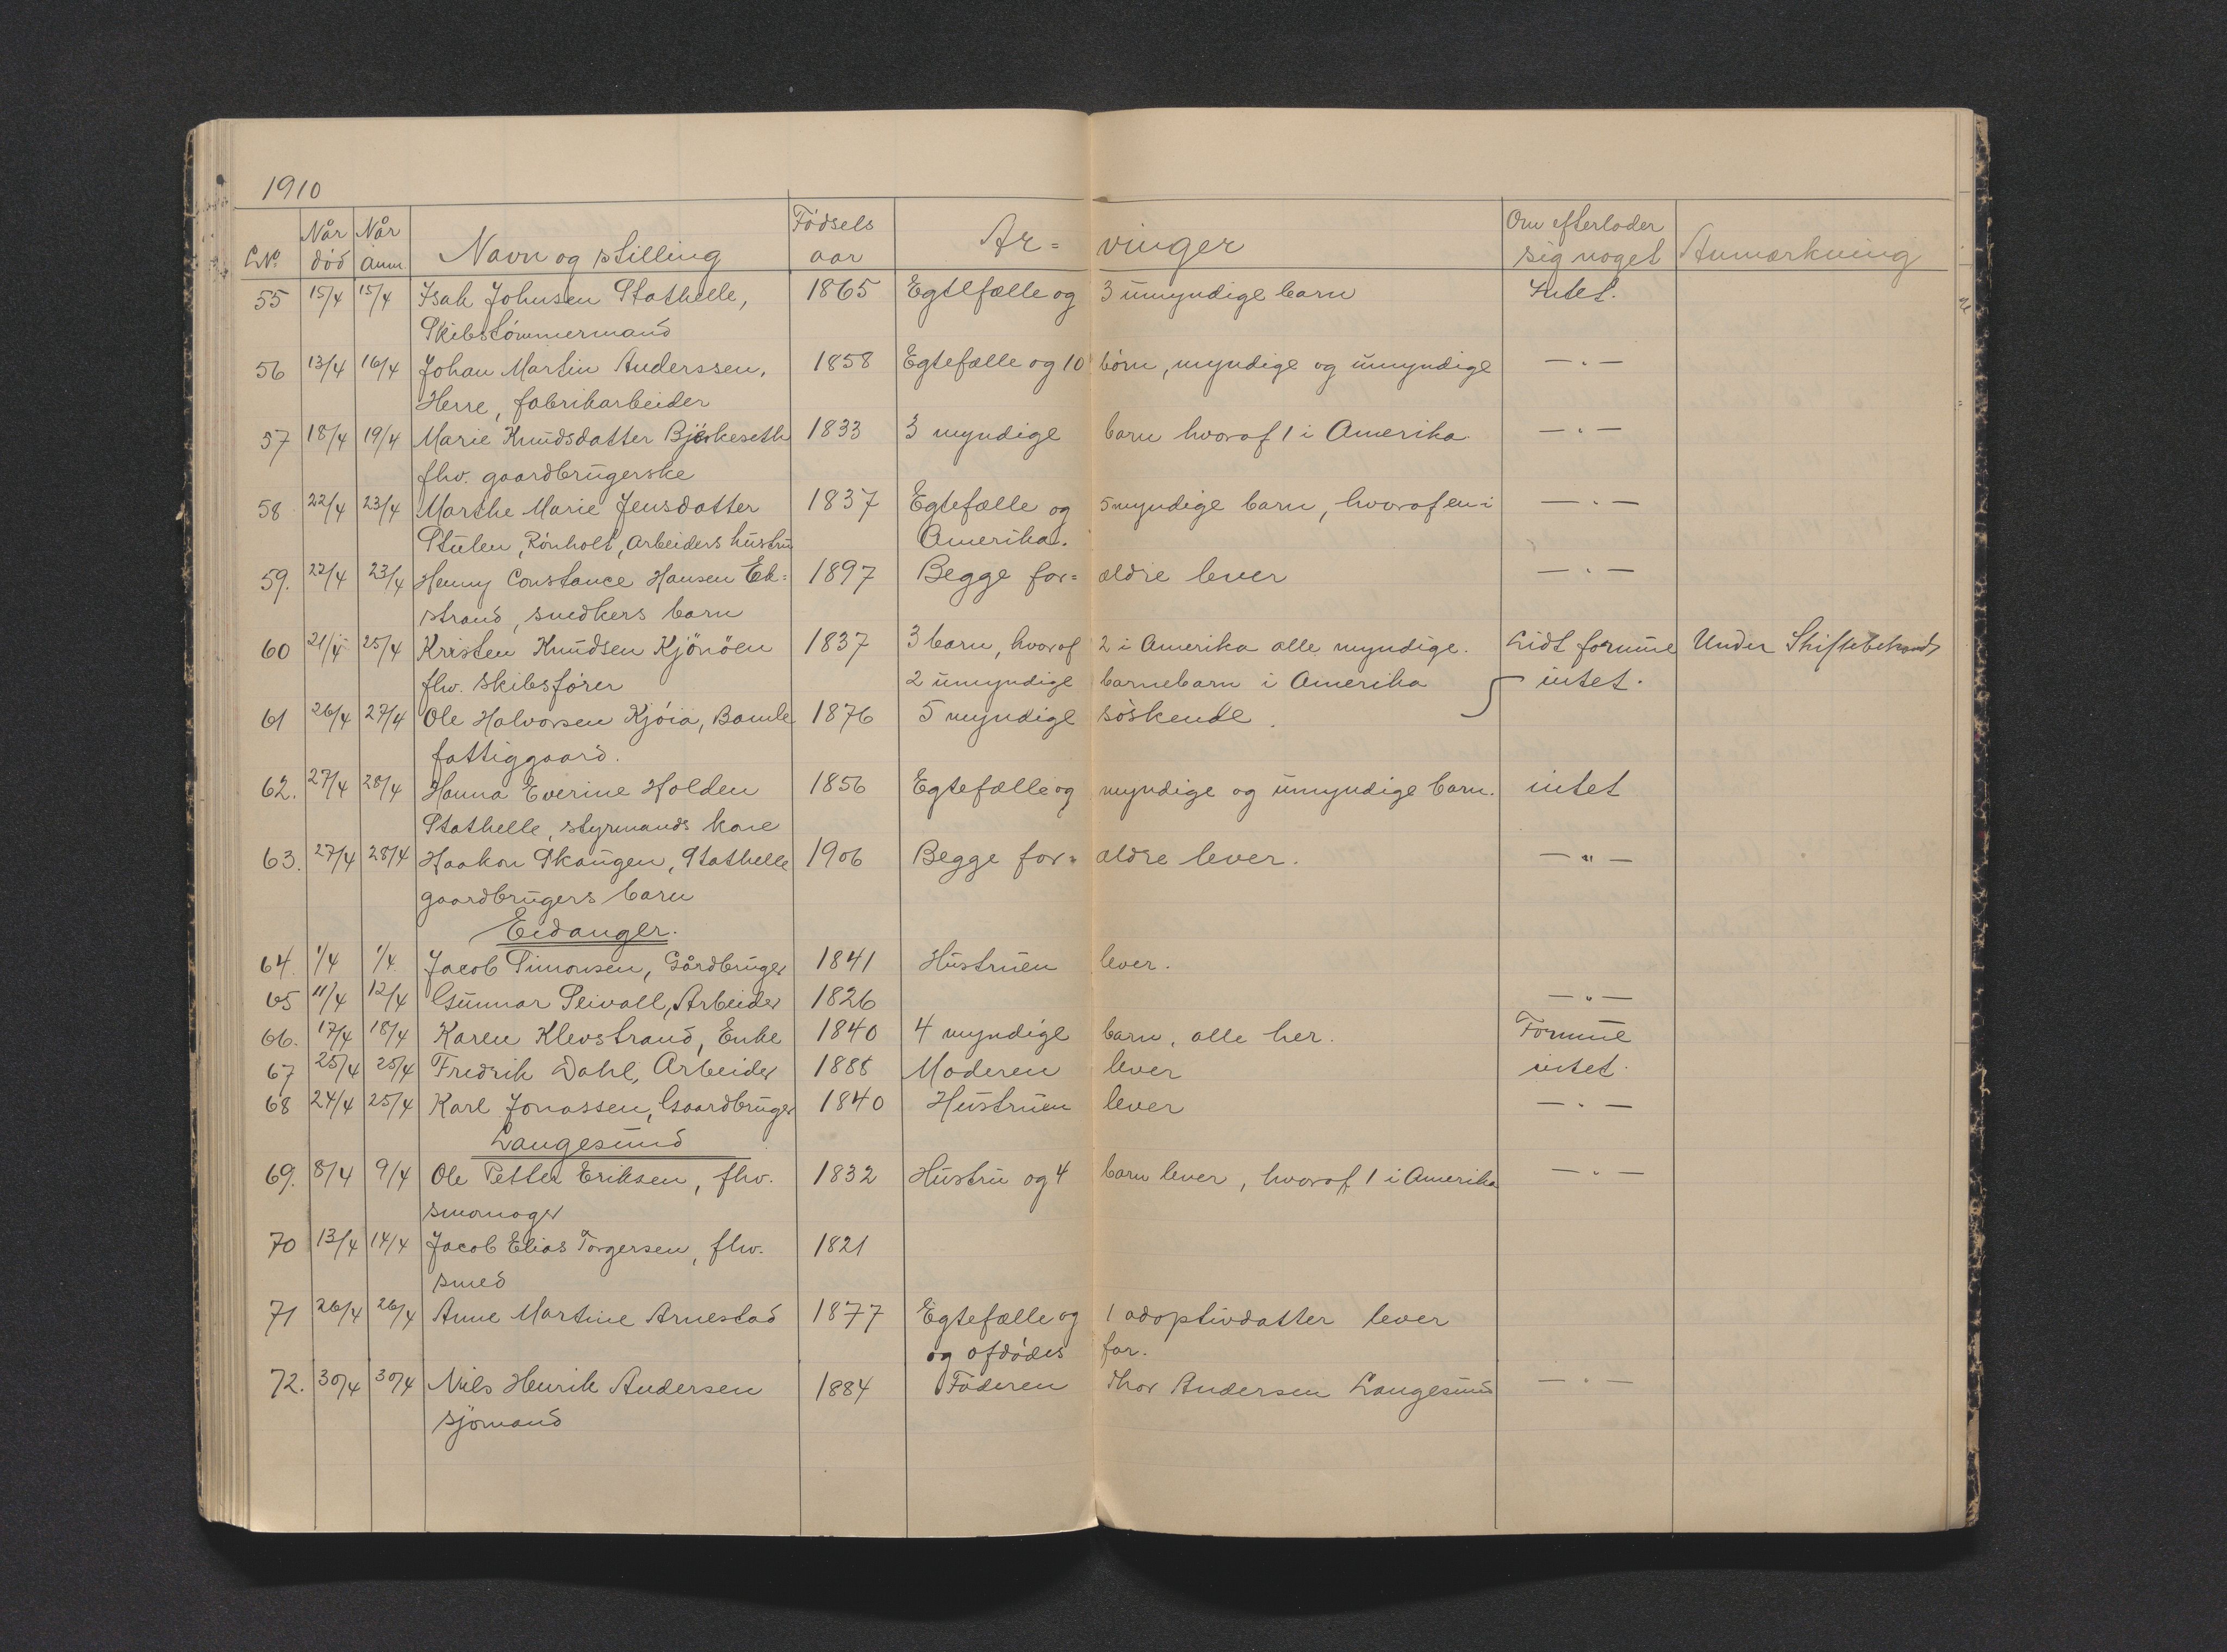 1910
Når Når Fødsels Om efterlader
LNº død anm Navn og stilling aar Ar= vinger sig noget Anmærkning
55 15/4 15/4 Isak Johnsen Stathelle, 1865 Egtefælle og 3 umyndige barn Intet.
Skibstømmermand
56 13/4 16/4 Johan Martin Anderssen, 1858 Egtefælle og 10 børn, myndige og umyndige —"—
Herre, fabrikarbeider
57 18/4 19/4 Marie Knudsdatter Bjerkeseth 1833 3 myndige barn hvoraf 1 i Amerika. —"—
fhv. gaardbrugerske
58 22/4 23/4 Marthe Marie Jensdatter 1837 Egtefælle og 5 myndige barn, hvoraf en i —"—
Stulen, Rønholt, Arbeiders hustru Amerika.
59. 22/4 23/4 Henny Constance Hansen Ek= 1897 Begge for= ældre lever —"—
strand, snedkers barn
60 21/4 25/4 Kristen Knudsen Kjönöen 1837 3 barn, hvoraf 2 i Amerika alle myndige. Lidt formue Under Skiftebehandl
fhv. skibsfører 2 umyndige barnebarn i Amerika intet.
61 26/4 27/4 Ole Halvorsen Kjøia, Bamle 1876 5 myndige søskende.
fattiggaard.
62. 27/4 28/4 Hanna Everine Holden 1856 Egtefælle og myndige og umyndige barn. intet
Stathelle, styrmands kone
63. 27/4 28/4 Haakon Skaugen, Stathelle 1906 Begge for= ældre lever. —"—
gaardbrugers barn
Eidanger.
64 1/4 1/4 Jacob Simonsen, Gårdbruger 1841 Hustruen lever.
65 11/4 12/4 Gunnar Seivall, Arbeider 1826 —"—
66. 17/4 18/4 Karen Klevstrand, Enke 1840 4 myndige barn, alle her. Formue
67 25/4 25/4 Fredrik Dahl, Arbeider 1888 Moderen lever intet.
68 24/4 25/4 Karl Jonassen, Gaardbruger 1840 Hustruen lever —"—
Langesund
69. 8/4 9/4 Ole Petter Eriksen, fhv. 1832 Hustru og 4 barn lever, hvoraf 1 i Amerika —"—
smørnager
70 13/4 14/4 Jacob Elias Torgersen, fhv. 1821
smed
71 26/4 26/4 Anne Martine Arnestad 1877 Egtefælle og 1 adoptivdatter lever
og afdødes far.
72. 30/4 30/4 Niels Henrik Andersen 1884 Faderen Thor Andersen Langesund —"—
sjömand